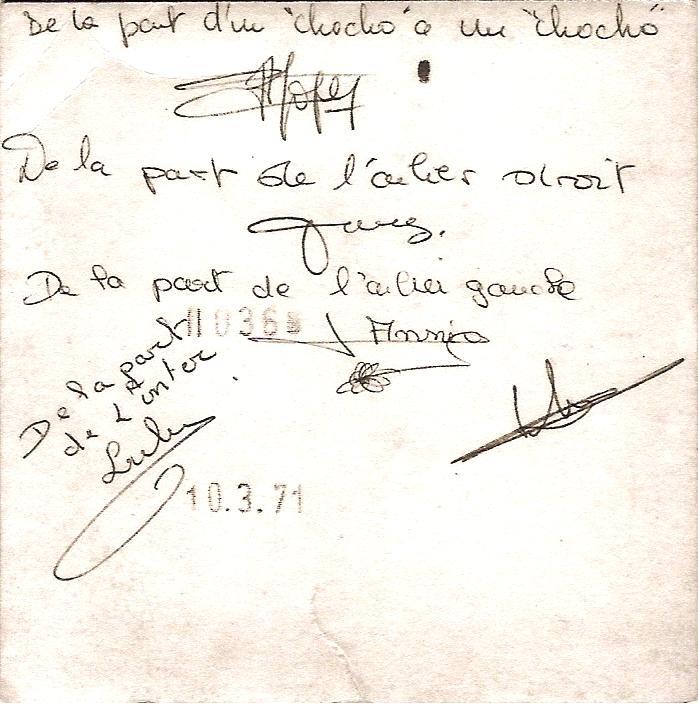 De la part d'un "chocho" à un "chocho"
De la part de l'ailier droit
De la part de l'ailier gauche
11036
Annie
De la part
de L'inter
Lulu
10.3.71